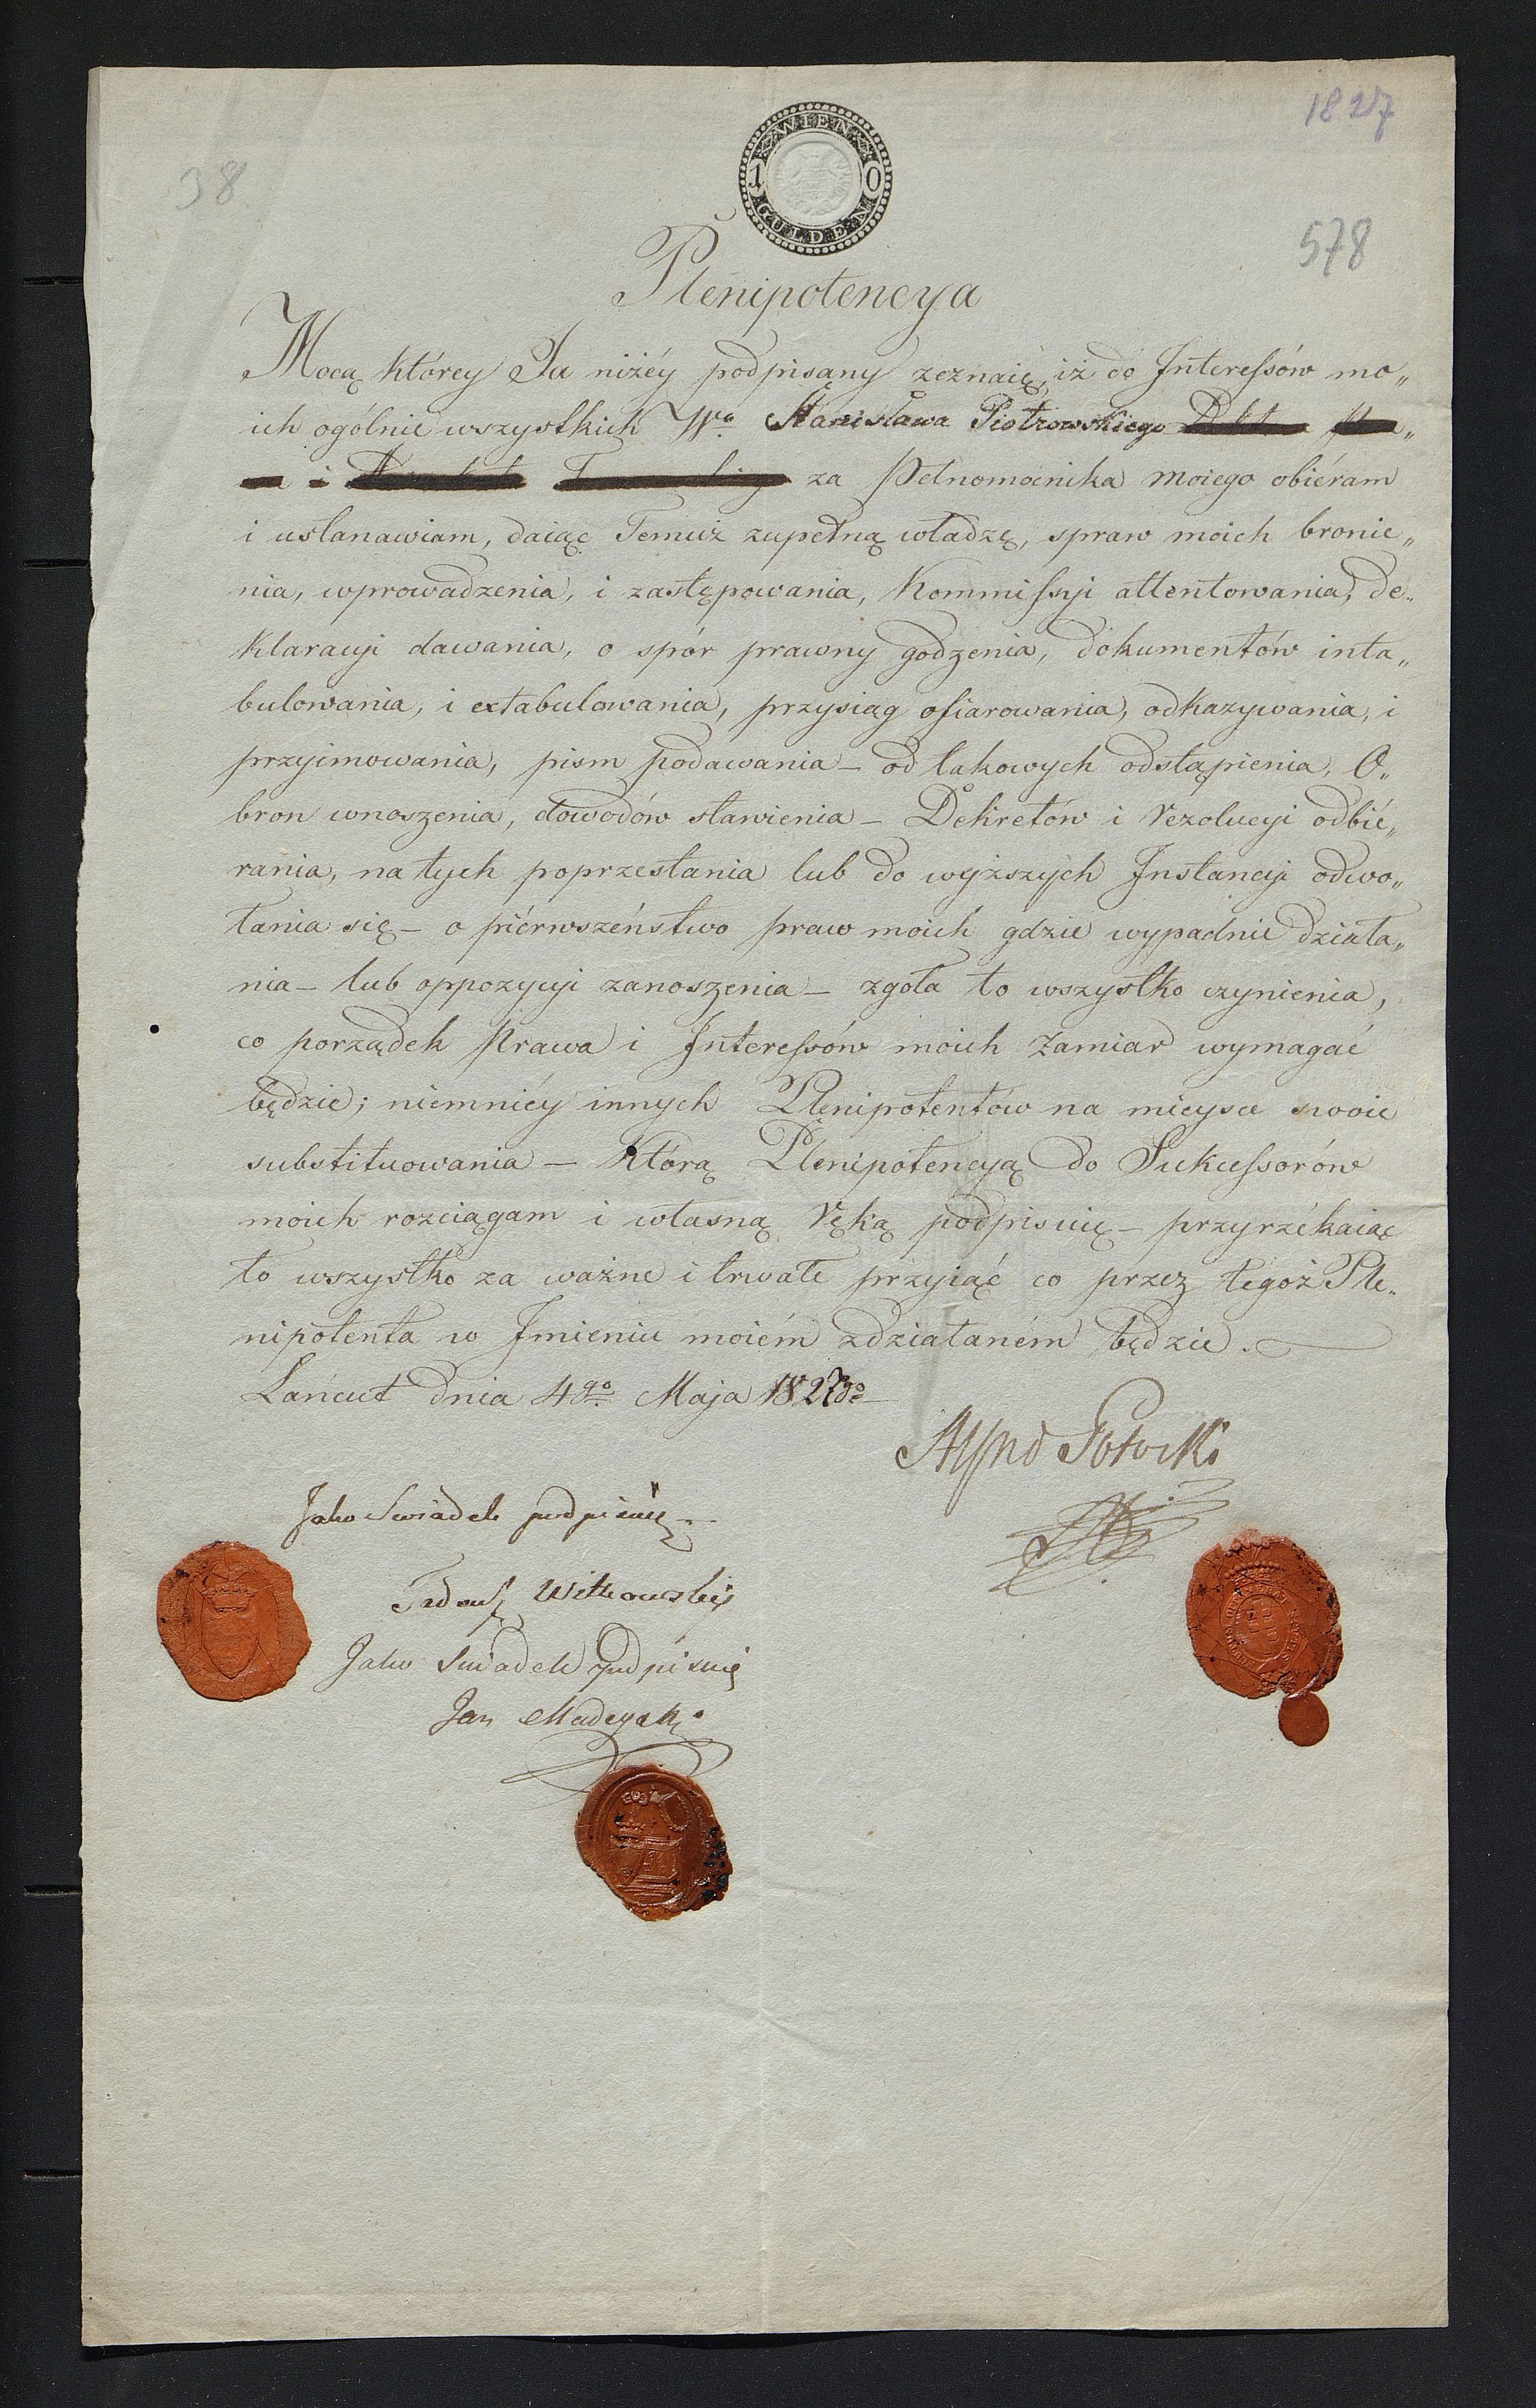 1827
38
WIEN
10
GULDEN
578
Plenipotencya
Mocą którey Ja niżéy podpisany zeznaię, iż do Interessów mo„
ich ogólnie wszystkich Wo Stanisława Piotrowskiego
i za Pełnomocnika moiego obiéram
i ustanawiam, daiąc Temuż zupełną władzę, spraw moich bronie„
nia, wprowadzenia, i zastępowania, Kommissyi attentowania, de„
klaracyi dawania, o spór prawny godzenia, dokumentów inta„
bulowania, i extabulowania, przysiąg ofiarowania, odkazywania, i
przyimowania, pism podawania – od takowych odstąpienia, O„
bron wnoszenia, dowodów stawienia – Dekretów i rezolucyi odbié„
rania, na tych poprzestania lub do wyższych Instancyi odwo„
łania się – o piérwszeństwo praw moich gdzie wypadnie działa„
nia – lub oppozycyi zanoszenia – zgoła to wszystko czynienia,
co porządek Prawa i Interessów moich zamiar wymagać
będzie; niemniéy innych Plenipotentów na mieysce swoie
substituowania – Którą Plenipotencyą do Sukcessorów
moich rozciągam i własną ręką podpisuię – przyrzékaiąc
to wszystko za ważne i trwałe przyiąć co przez tegoż Ple„
nipotenta w Imieniu moiém zdziałaném będzie.
Łańcut dnia 4go Maja 1827go
Alfred Potocki
Jako Swiadek podpisuię
Tadeusz Witkowski
Jako swiadek podpisuię
Jan Madeyski